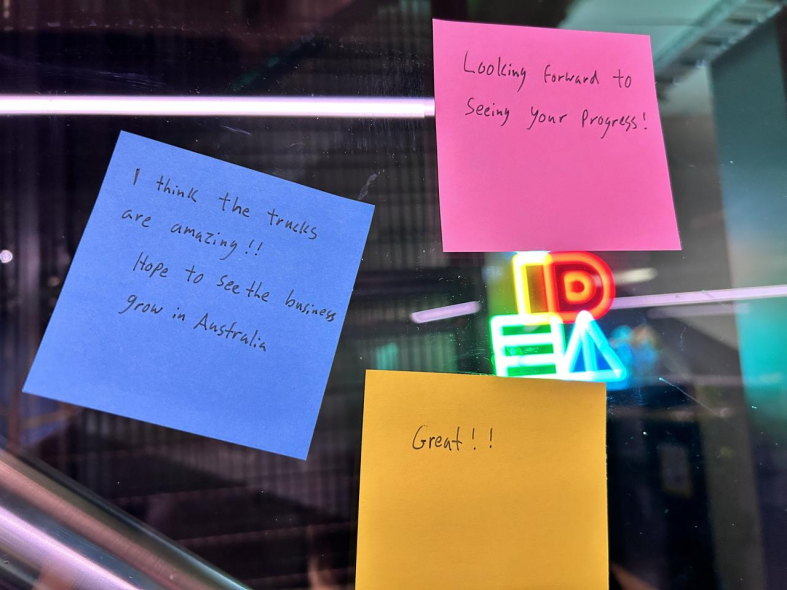 Looking forward to
Seeing your Progress!
I think the trucks
are amazing!!
Hope to see the business
grow in Australia
ID
EA
Great!!